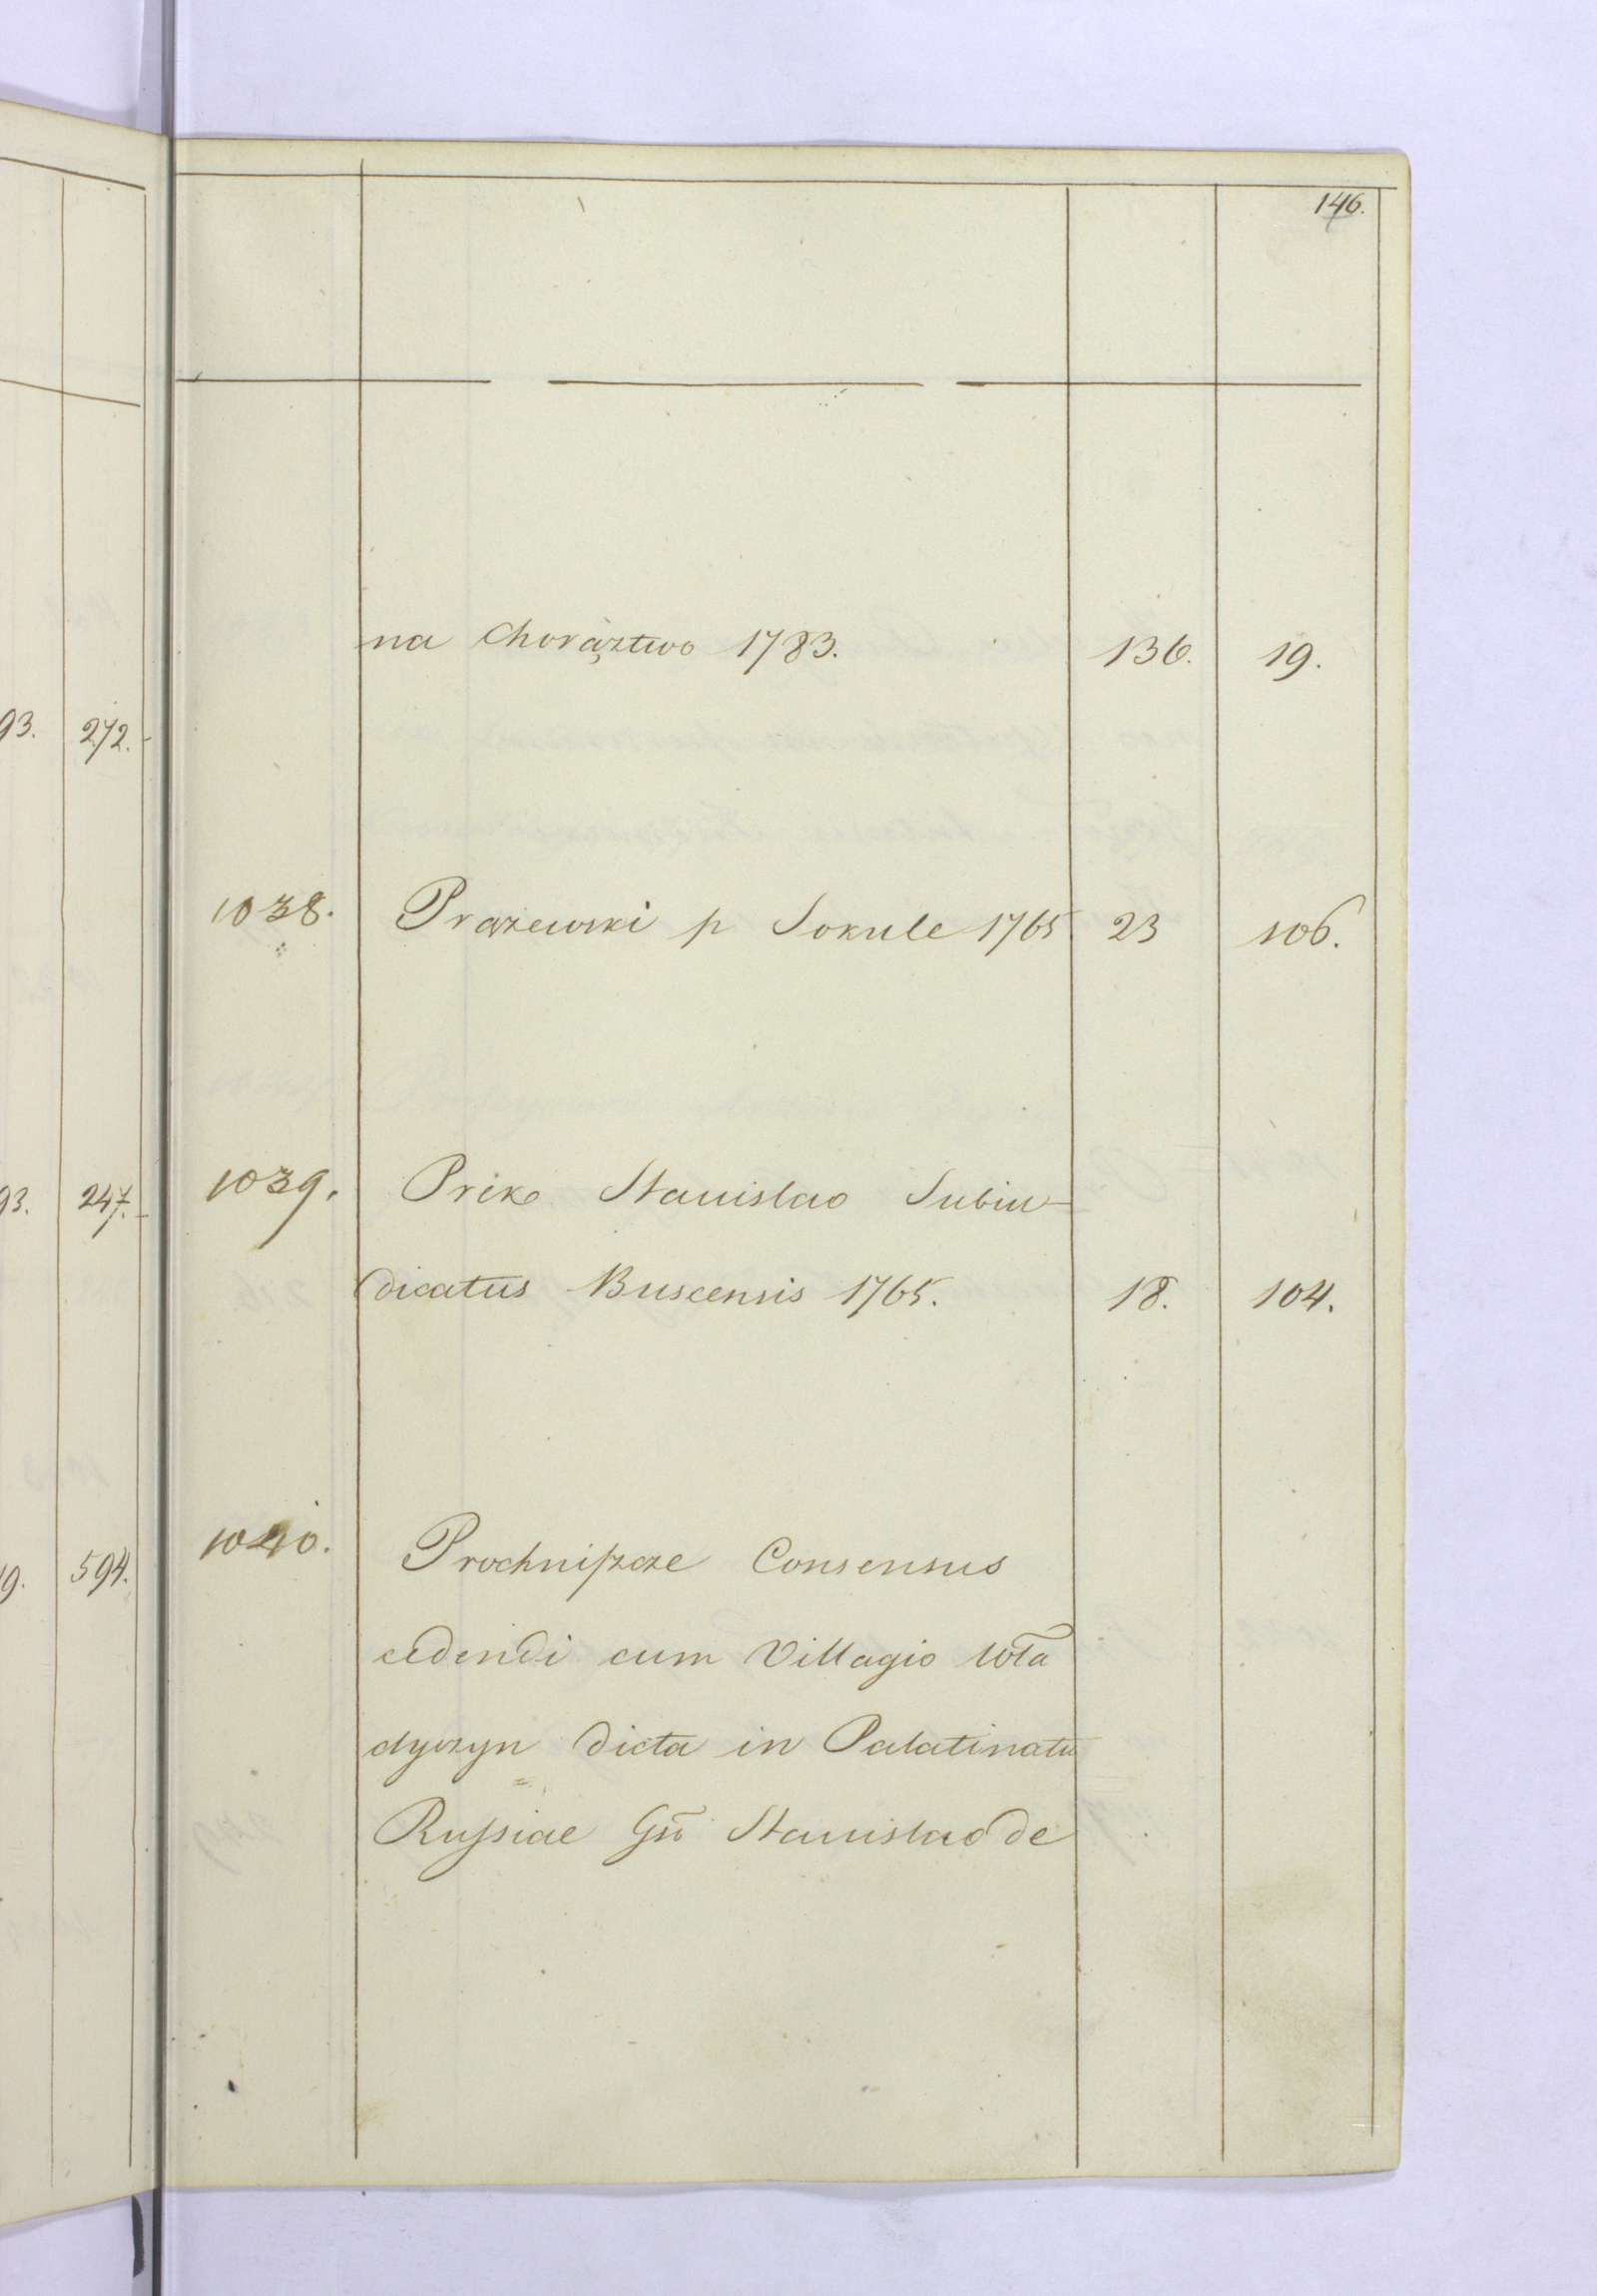 146.
na Chorąztwo 1783. 136. 19.
93. 272.
1038. Prazewski p Sokule 1765 23 106.
1039. Priko Stanislao Subiu-
93. 247.
dicatus Buscensis 1765. 18. 104.
1040. Prochnißcze Consensus
9. 594.
cedendi cum Villagio Wła
dyczyn dicta in Palatinatu
Rußiae Gñ Stanislao de